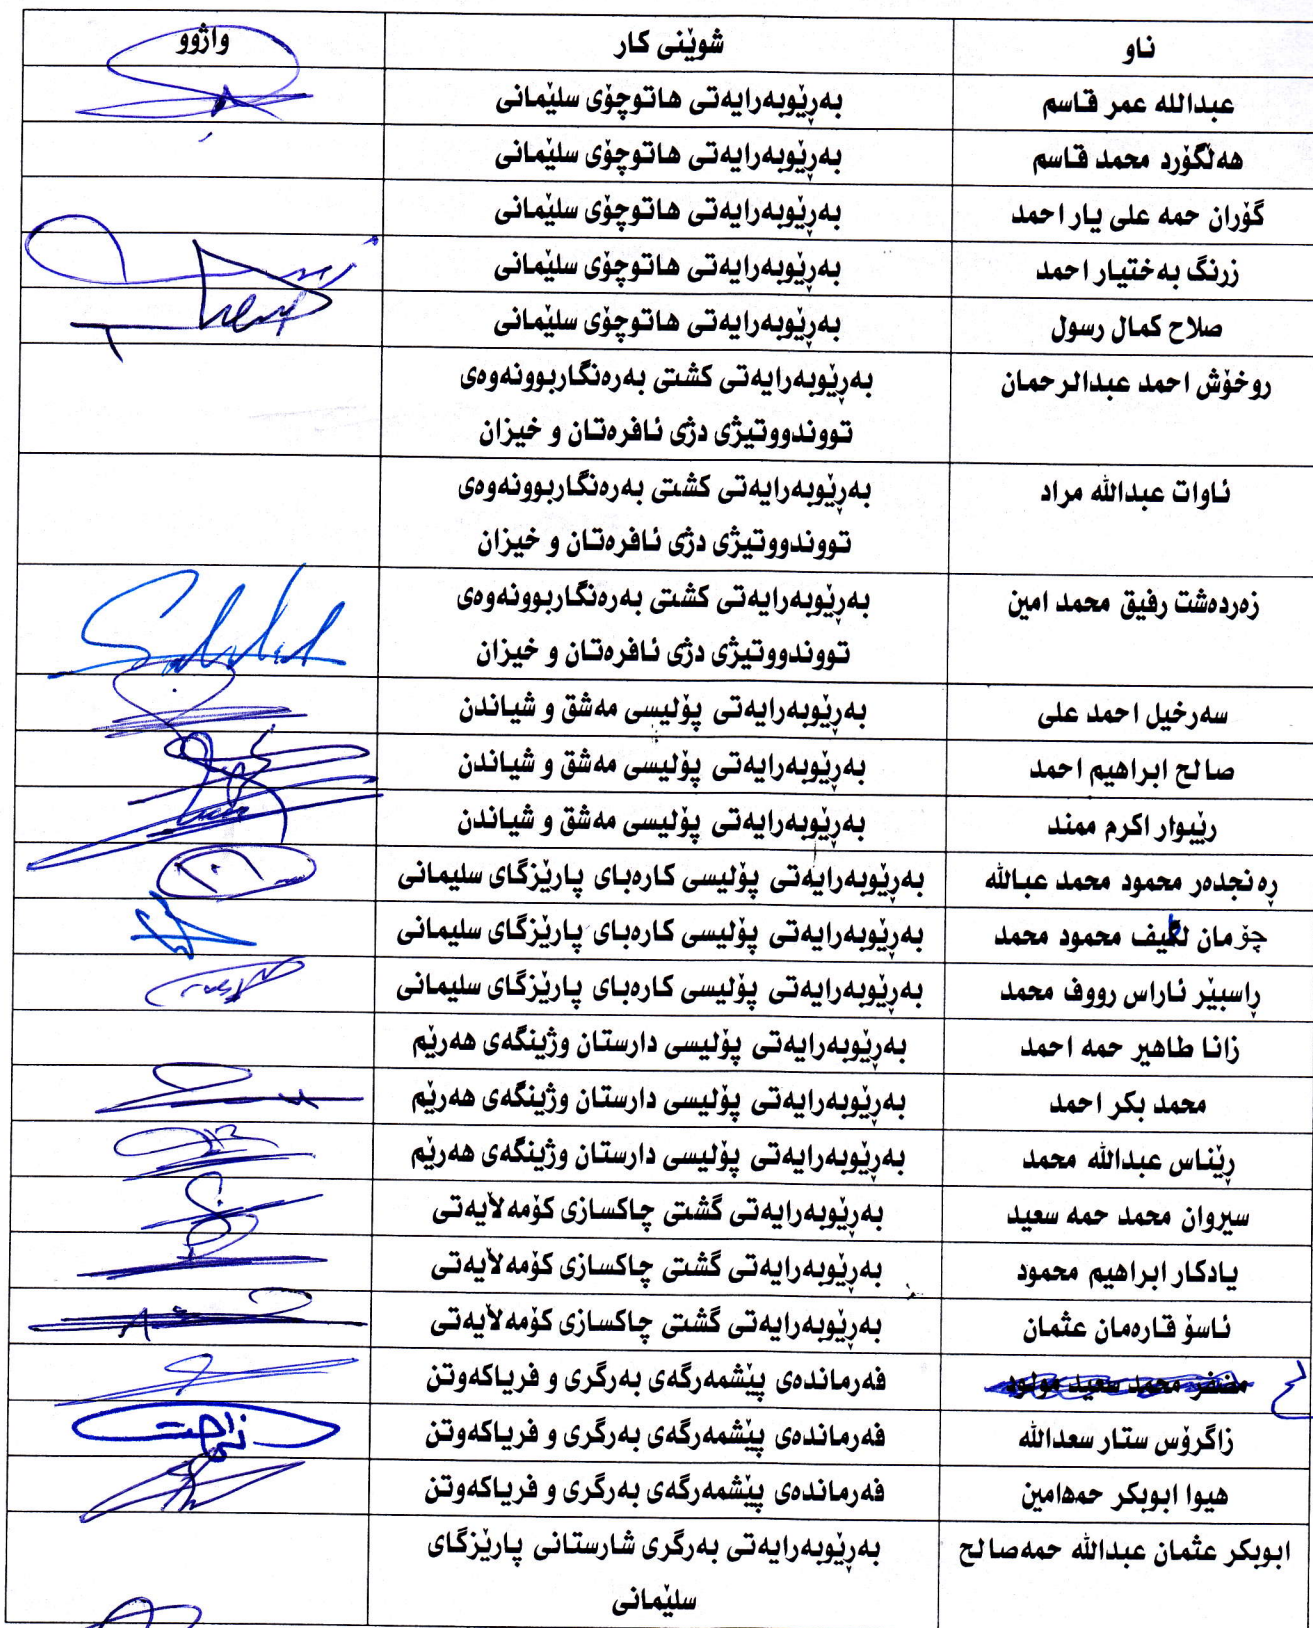 ناو شوێنی کار واژوو
عبدالله عمر قاسم بەڕێوبەرایەتی هاتوچۆی سلێمانی
هەڵگۆرد محمد قاسم بەڕێوبەرایەتی هاتوچۆی سلێمانی
گۆران حمه علی یار احمد بەڕێوبەرایەتی هاتوچۆی سلێمانی
زرنگ بەختیار احمد بەڕێوبەرایەتی هاتوچۆی سلێمانی
صلاح کمال رسول بەڕێوبەرایەتی هاتوچۆی سلێمانی
روخۆش احمد عبدالرحمان بەڕێوبەرایەتی کشتی بەرەنگاربوونەوەی
تووندووتیژی دژی ئافرەتان و خیزان
ئاوات عبدالله مراد بەڕێوبەرایەتی کشتی بەرەنگاربوونەوەی
تووندووتیژی دژی ئافرەتان و خیزان
زەردەشت رفیق محمد امین بەڕێوبەرایەتی کشتی بەرەنگاربوونەوەی
تووندووتیژی دژی ئافرەتان و خیزان
سەرخیل احمد علی بەڕێوبەرایەتی پۆلیسی مەشق و شیاندن
صالح ابراهیم احمد بەڕێوبەرایەتی پۆلیسی مەشق و شیاندن
رێبوار اکرم ممند بەڕێوبەرایەتی پۆلیسی مەشق و شیاندن
ڕەنجدەر محمود محمد عبالله بەڕێوبەرایەتی پۆلیسی کارەبای پارێزگای سلیمانی
چۆمان محمود محمد بەڕێوبەرایەتی پۆلیسی کارەبای پارێزگای سلیمانی
ڕاسبێر ئاراس رووف محمد بەڕێوبەرایەتی پۆلیسی کارەبای پارێزگای سلیمانی
زانا طاهیر حمه احمد بەڕێوبەرایەتی پۆلیسی دارستان وژینگەی هەرێم
محمد بکر احمد بەڕێوبەرایەتی پۆلیسی دارستان وژینگەی هەرێم
ڕێناس عبدالله محمد بەڕێوبەرایەتی پۆلیسی دارستان وژینگەی هەرێم
سیروان محمد حمه سعید بەڕێوبەرایەتی گشتی چاکسازی کۆمەڵایەتی
یادکار ابراهیم محمود بەڕێوبەرایەتی گشتی چاکسازی کۆمەڵایەتی
ئاسۆ قارەمان عثمان بەڕێوبەرایەتی گشتی چاکسازی کۆمەڵایەتی
محمد سعید فەرماندەی پێشمەرگەی بەرگری و فریاکەوتن
زاگرۆس ستار سعدالله فەرماندەی پێشمەرگەی بەرگری و فریاکەوتن
هیوا ابوبکر حمەامین فەرماندەی پێشمەرگەی بەرگری و فریاکەوتن
ابوبکر عثمان عبدالله حمەصالح بەڕێوبەرایەتی بەرگری شارستانی پارێزگای
سلێمانی